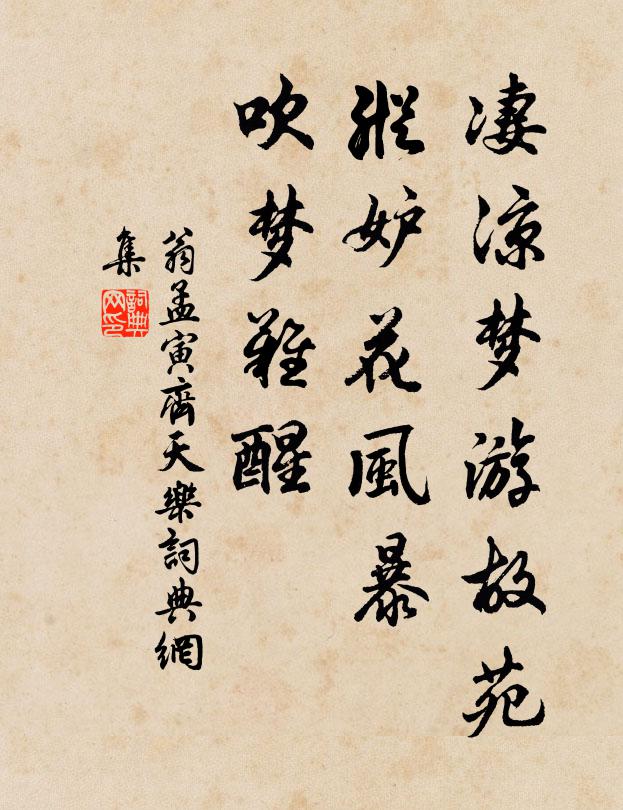 凄凉梦游故苑
縱妒花風暴
吹梦難醒
翁孟寅齊天樂詞典網
集
詞典网印